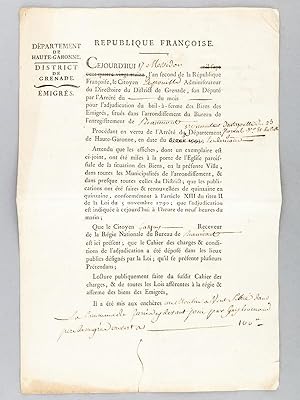 REPUBLIQUE FRANÇOISE.
DÉPARTEMENT
DE
HAUTE-GARONNE.
DISTRICT
DE
GRENADE.
EMIGRÉS.
CEJOURDHUI 17 Messidor mil sept
cens quatre-vingt-treize, l'an second de la République
Françoise, le Citoyen Administrateur
du Directoire du District de Grenade, son Député
par l'Arrêté du du mois
pour l'adjudication du bail-à-ferme des Biens des
Emigrés, situés dans l'arrondissement du Bureau de
l'enregistrement de Beaumont
Procédant en vertu de l'Arrêté du Département
de Haute-Garonne, en date du
Attendu que les affiches, dont un exemplaire est
ci-joint, ont été mises à la porte de l'Eglise parois-
siale de la situation des Biens, en la présente Ville,
dans toutes les Municipalités de l'arrondissement, &
dans presque toutes celles du District, que les publi-
cations ont été faites & renouvellées de quinzaine en
quinzaine, conformément à l'article XIII du titre II
de la Loi du 5 novembre 1790; que l'adjudication
est indiquée à cejourd'hui à l'heure de neuf heures du
matin;
Que le Citoyen Receveur
de la Régie Nationale du Bureau de Beaumont
est ici présent; que le Cahier des charges & conditions
de l'adjudication a été déposé dans les lieux
publics désignés par la Loi; qu'il se présente plusieurs
Prétendans;
Lecture publiquement faite du susdit Cahier des
charges, & de toutes les Loix afférentes à la régie &
afferme des biens des Emigrés,
Il a été mis aux enchères un Moulin à Vent, situé dans
la Commune